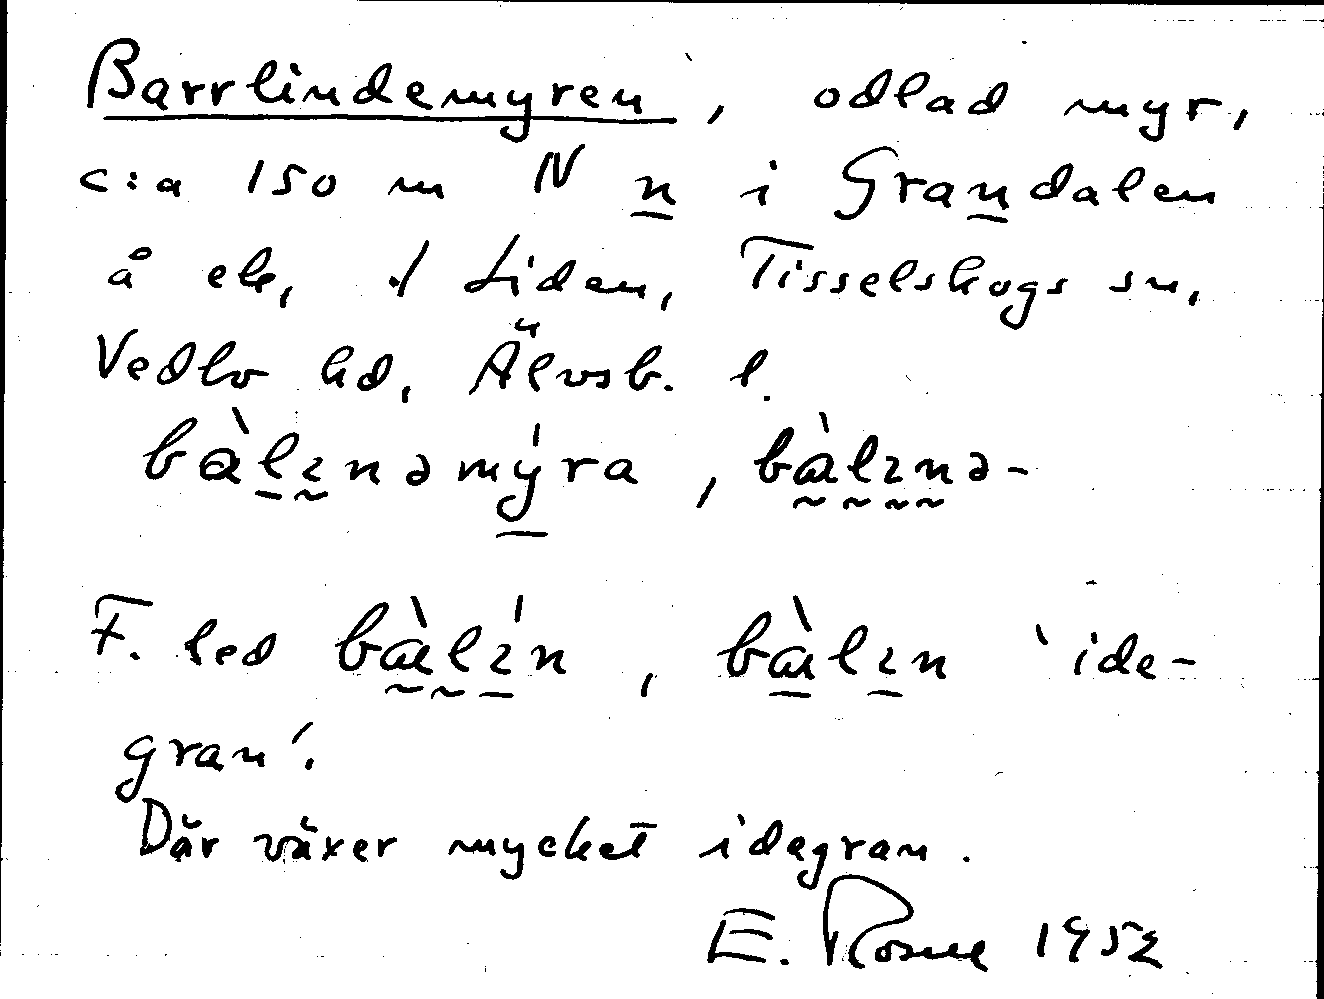 Barrlindemyren, odlad myr,
c:a 150 m N n i Grandalen
å ek, ./ Liden, Tisselskogs sn,
Vedbo hd, Älvsb. l.
bàlɩnəmýra, bàlɩnə-
F. led bàlɩ́n, bàlɩn 'ide-
gran'.
Där växer mycket idegran.
E. Rosue 1952